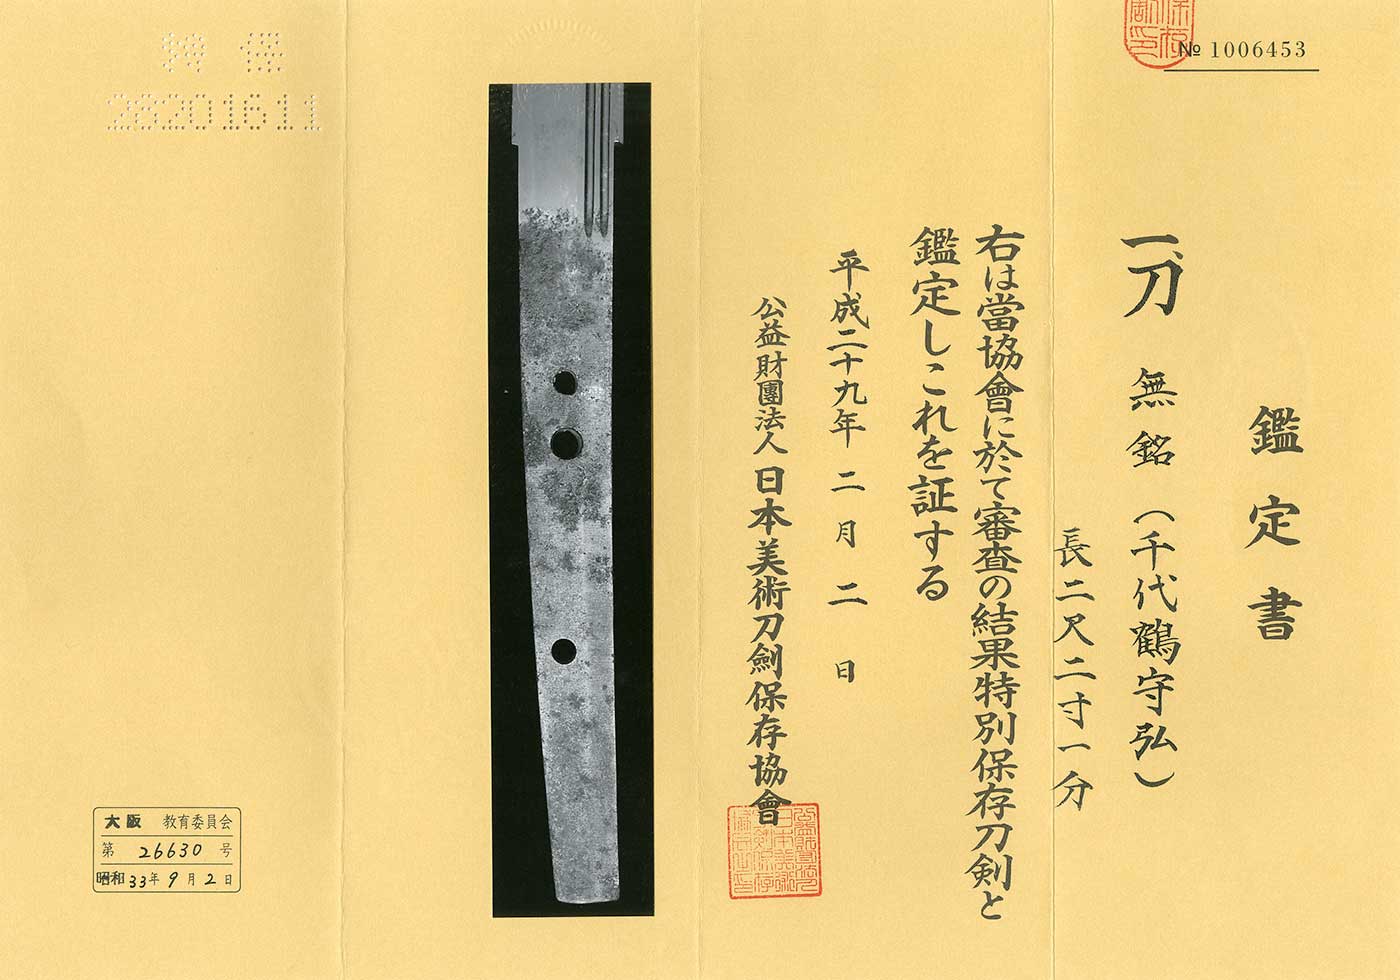 № 1006453
鑑定書
一、刀 無銘（千代鶴守弘）
長二尺二寸一分
右は當協會に於て審査の結果特別保存刀剣と
鑑定しこれを証する
平成二十九年 二月 二日
公益財團法人 日本美術刀劍保存協會
28201611
大阪 教育委員会
第 26630 号
昭和 33年 9月 2日